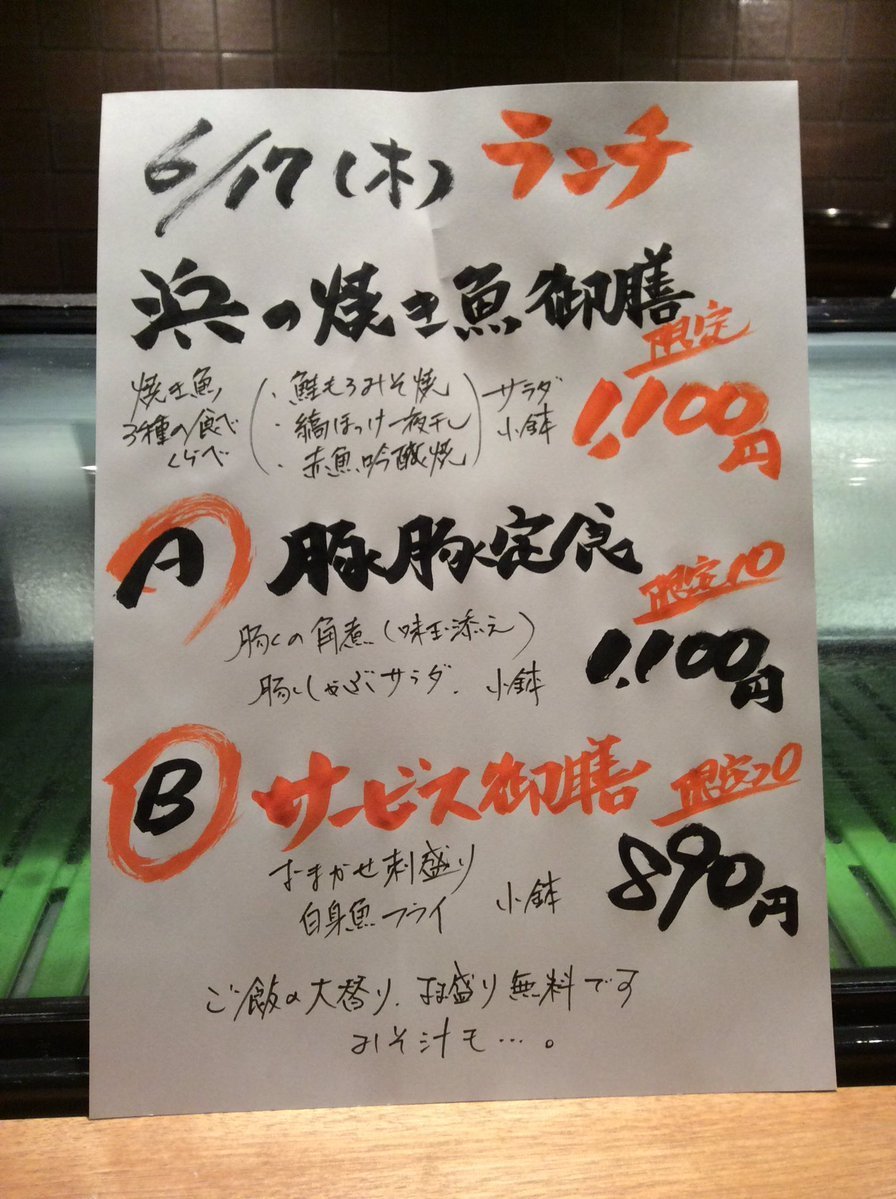 6/17(木) ランチ
浜の焼き魚御膳
限定
焼き魚
3種の食べ
くらべ
・鮭もろみそ焼
・縞ほっけ一夜干し
・赤魚吟醸焼
サラダ
小鉢
1,100円
A 豚豚定食
限定10
豚の角煮(味玉添え)
豚しゃぶサラダ. 小鉢
1,100円
B サービス御膳
限定20
おまかせ刺盛り
白身魚フライ
小鉢
890円
ご飯の大替り、大盛り無料です
みそ汁も…。